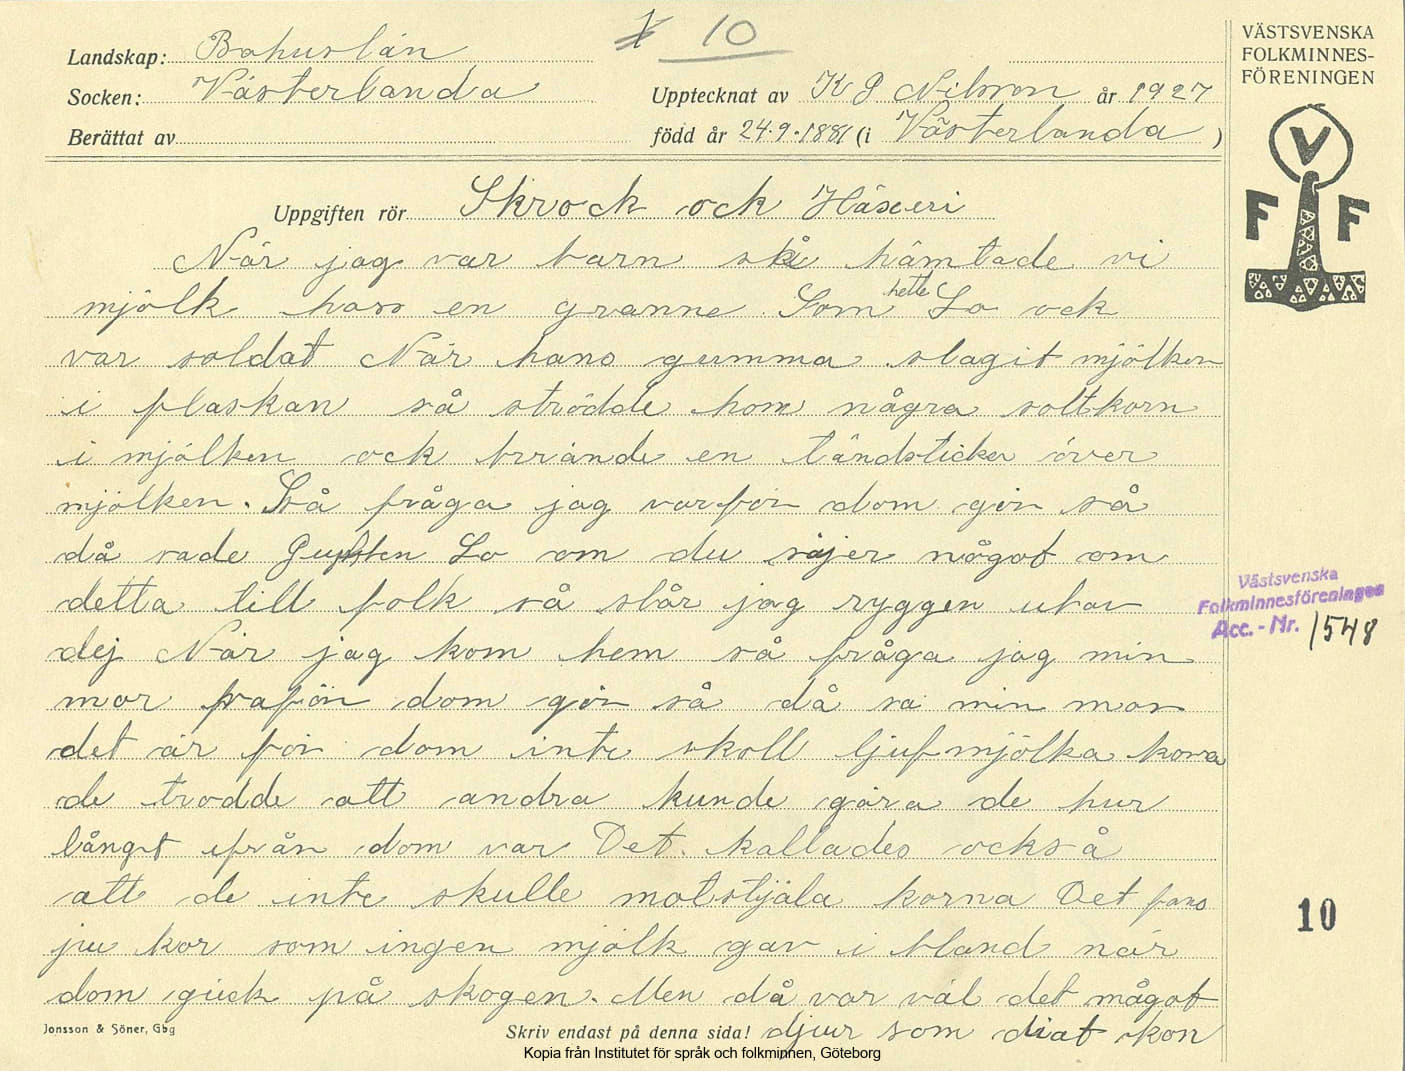 10
Landskap: Bohuslän
Socken: Västerlanda
Berättat av
Upptecknat av K G Nilsson år 1927
född år 24.9.1881 (i Västerlanda )
Uppgiften rör Skrock ock Häxeri
När jag var barn så hämtade vi
mjölk hoss en granne Som hette Lo ock
var soldat När hans gumma slagit mjölken
i flaskan så strödde hon några soltkorn
i mjölken ock brände en tändsticka över
mjölken. Så fråga jag varför dom gör så
då sade Gubben Lo om du säjer något om
detta till folk så slår jag ryggen utav
dej När jag kom hem så fråga jag min
mor vaför dom gör så då sa min mor
det är för dom inte skoll ljufmjölka korna
de trodde att andra kunde göra de hur
långt ifrån dom var Det kallades också
att de inte skulle motstjäla korna Det fans
ju kor som ingen mjölk gav i bland när
dom gick på skogen. Men då var väl det något
djur som diat kon
Skriv endast på denna sida!
Jonsson & Söner, Gbg
VÄSTSVENSKA
FOLKMINNES-
FÖRENINGEN
V
F F
Västsvenska
Folkminnesföreningen
Acc. - Nr. 1548
10
Kopia från Institutet för språk och folkminnen, Göteborg